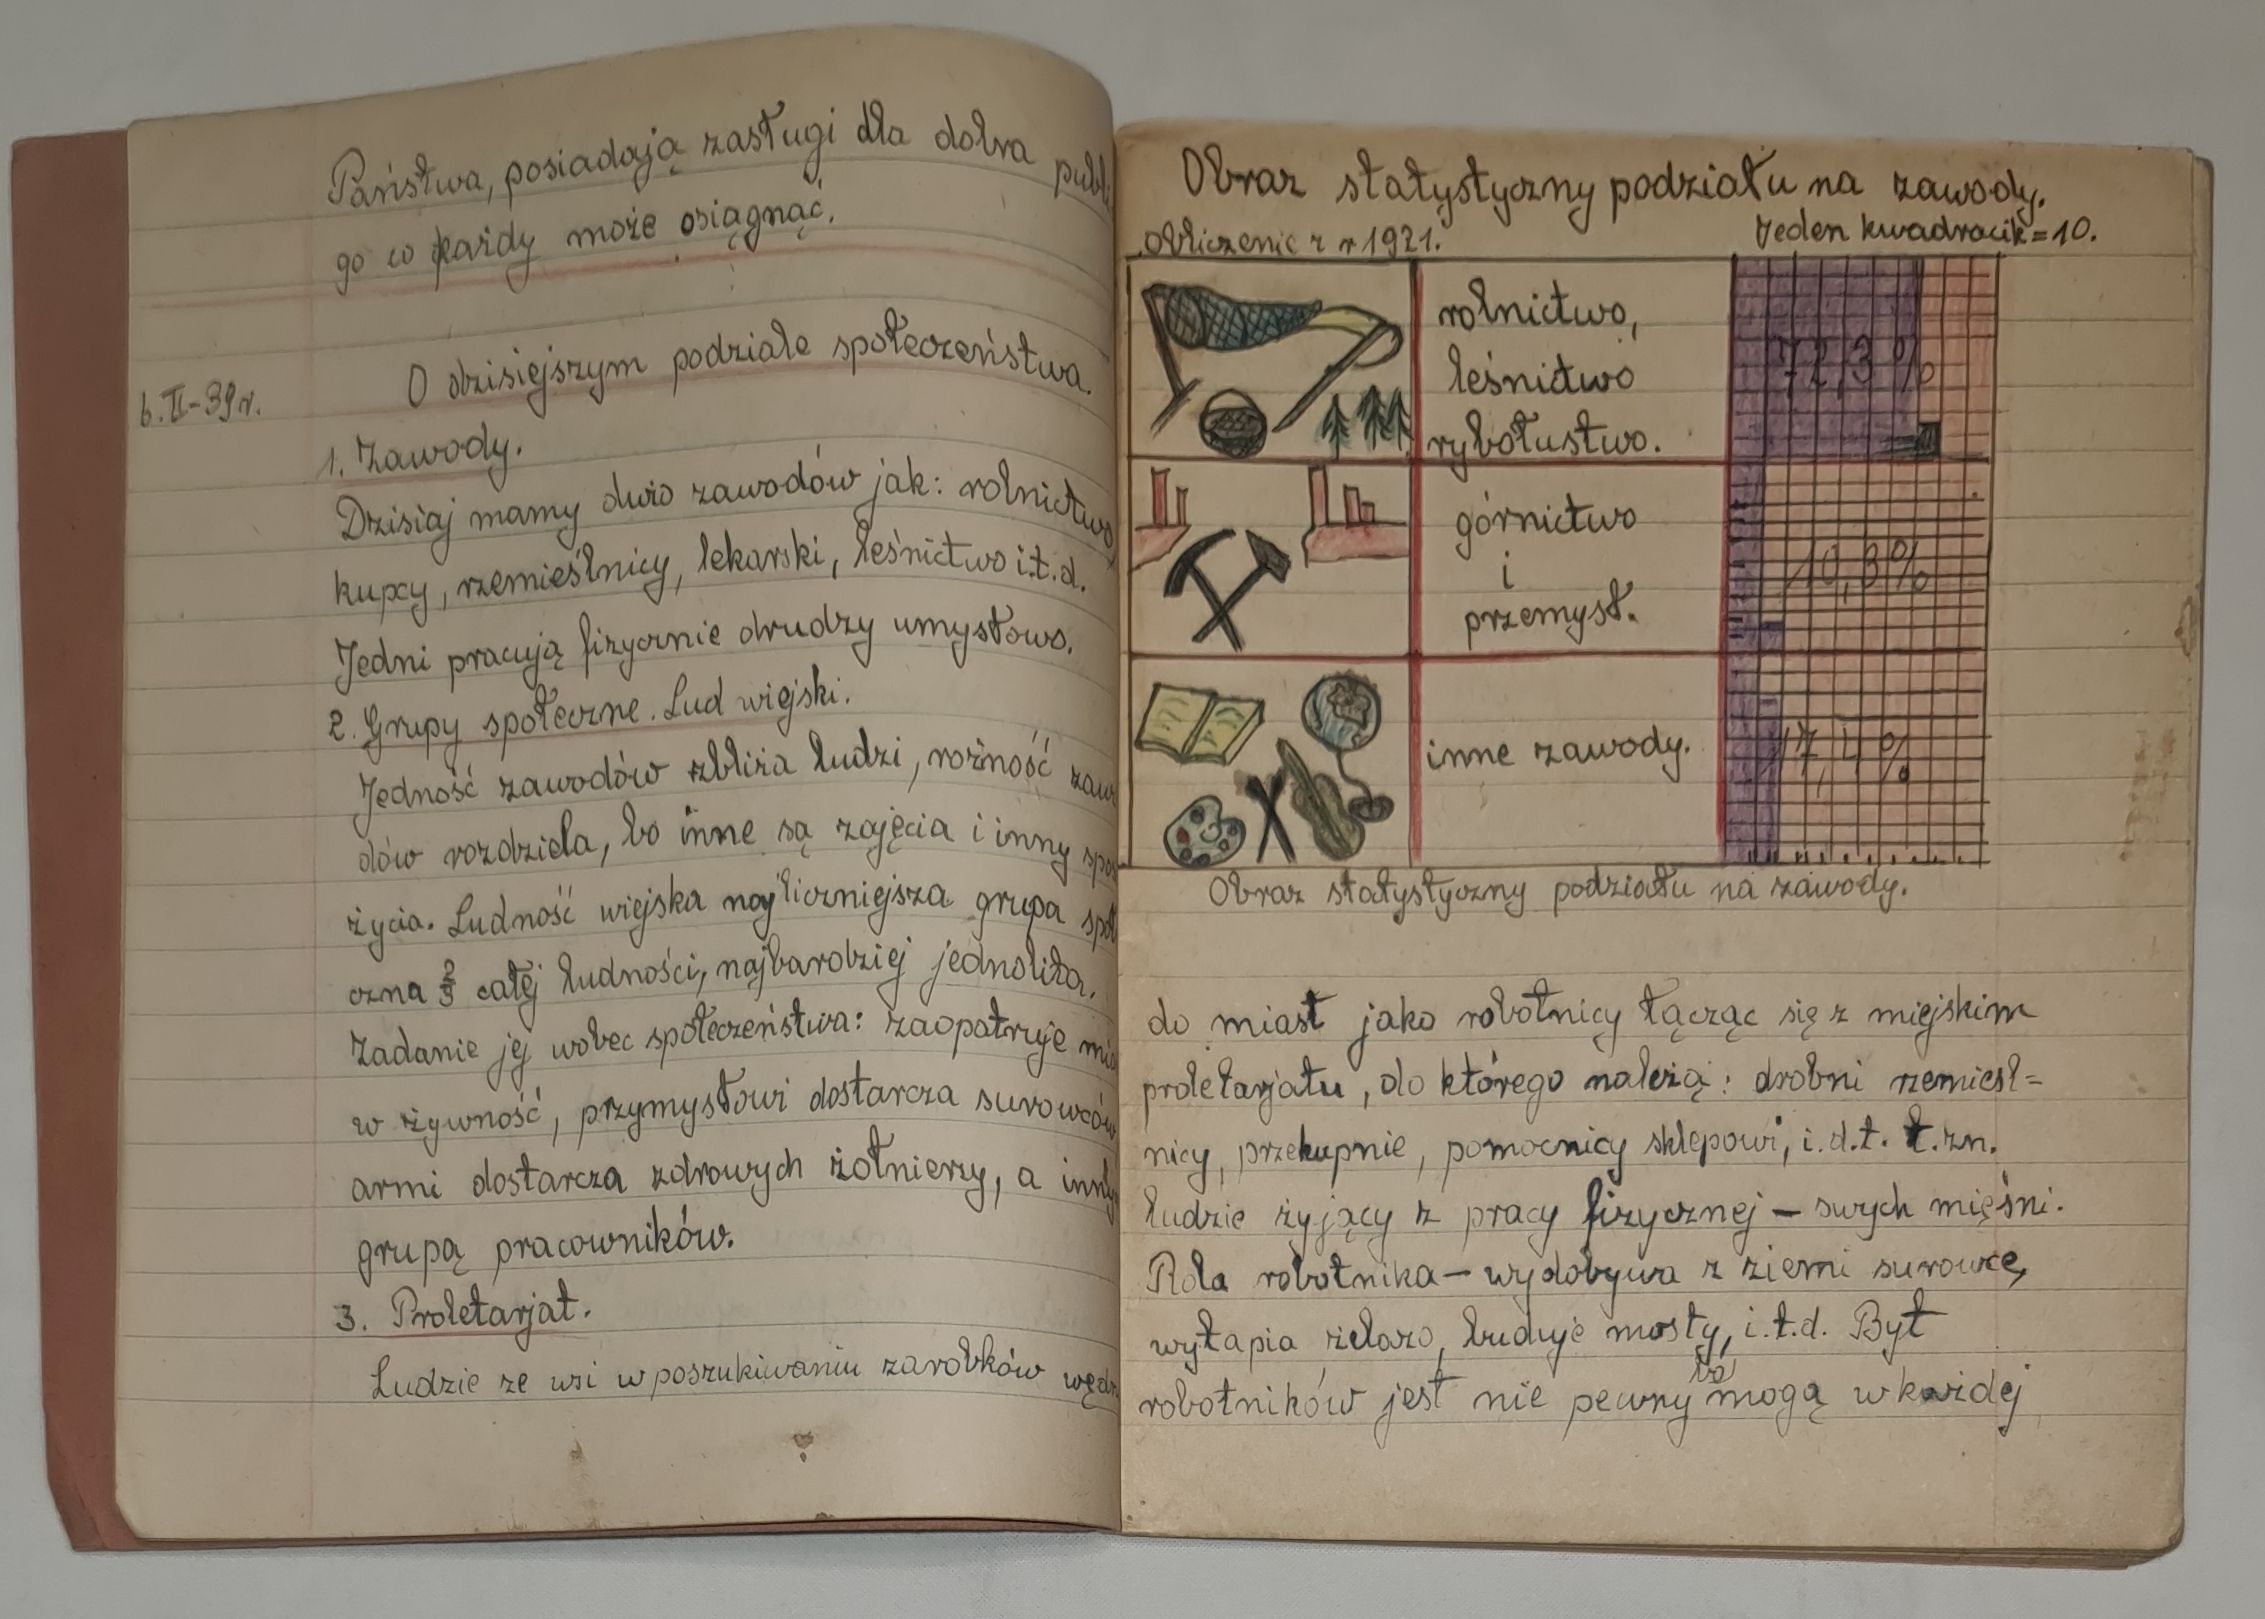 Państwa, posiadają zasługi dla dobra publi
go co każdy może osiągnąć.
O dzisiejszym podziale społeczeństwa.
6. II-39 r.
1. Zawody.
Dzisiaj mamy dużo zawodów jak: rolnictwo
kupcy, rzemieślnicy, lekarski, leśnictwo i.t.d.
Jedni pracują fizycznie drudzy umysłowo.
2. Grupy społeczne. Lud wiejski.
Jedność zawodów zbliża ludzi, rożność zaw
dów rozdziela, bo inne są zajęcia i inny spo
życia. Ludność wiejska najliczniejsza grupa społ
czna 2/3 całej ludności, najbardziej jednolita.
Zadanie jej wobec społeczeństwa: zaopatruje mia
w żywność, przymysłowi dostarcza surowców
armi dostarcza zdrowych żołnierzy, a inny
grupą pracowników.
3. Proletarjat.
Ludzie ze wsi w poszukiwaniu zarobków wędr
Obraz statystyczny podziału na zawody.
Obliczenie z r 1921.
Jeden kwadracik = 10.
rolnictwo,
leśnictwo
rybołustwo.
72,3 %
górnictwo
i
przemysł.
10,3%
inne zawody.
17,4%
Obraz statystyczny podziału na zawody.
do miast jako robotnicy łącząc się z miejskim
proletarjatu, do którego należą: drobni rzemieśl=
nicy, przekupnie, pomocnicy sklepowi, i.d.t. t.zn.
ludzie żyjący z pracy fizycznej – swych mięśni.
Rola robotnika – wydobywa z ziemi surowce,
wytapia żelazo, buduje mosty, i.t.d. Byt
robotników jest nie pewny bo mogą w każdej